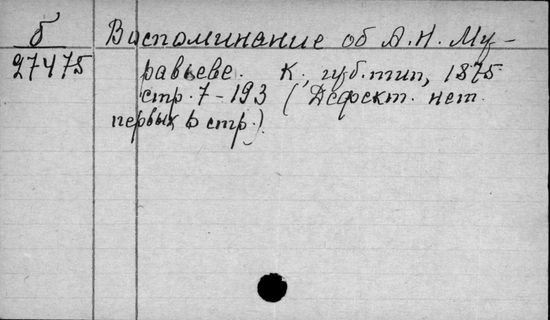 б Воспоминание об А.Н. Му-
27475 равьеве. К, губ.тип, 1875
стр. 7-193 (Дефект. нет
первых 6 стр.).